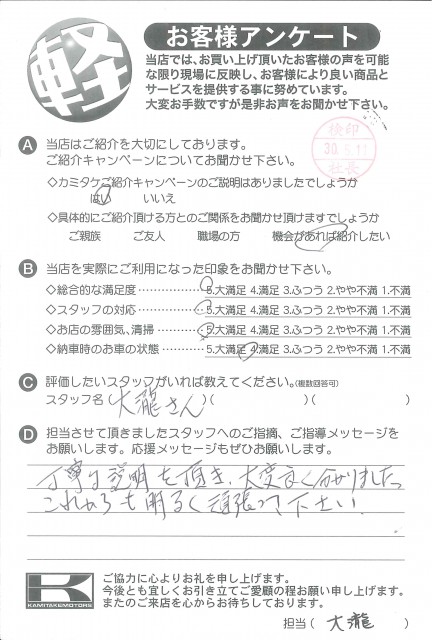 軽
お客様アンケート
当店では、お買い上げ頂いたお客様の声を可能
な限り現場に反映し、お客様により良い商品と
サービスを提供する事に努めています。
大変お手数ですが是非お声をお聞かせ下さい。
検印
社長
A 当店はご紹介を大切にしております。
ご紹介キャンペーンについてお聞かせ下さい。
◇カミタケご紹介キャンペーンのご説明はありましたでしょうか
はい いいえ
◇具体的にご紹介頂ける方とのご関係をお聞かせ頂けますでしょうか
ご親族 ご友人 職場の方 機会があれば紹介したい
B 当店を実際にご利用になった印象をお聞かせ下さい。
◇総合的な満足度……………5.大満足 4.満足 3.ふつう 2.やや不満 1.不満
◇スタッフの対応……………5.大満足 4.満足 3.ふつう 2.やや不満 1.不満
◇お店の雰囲気、清掃………5.大満足 4.満足 3.ふつう 2.やや不満 1.不満
◇納車時のお車の状態………5.大満足 4.満足 3.ふつう 2.やや不満 1.不満
C 評価したいスタッフがいれば教えてください。(複数回答可)
スタッフ名(大瀧さん)( )( )
D 担当させて頂きましたスタッフへのご指摘、ご指導メッセージを
お願いします。応援メッセージもぜひお願いします。
丁寧な説明を頂き、大変良く分かりました。
これからも明るく頑張って下さい。
K
KAMITAKEMOTORS
ご協力に心よりお礼を申し上げます。
今後とも宜しくお引き立てご愛顧の程お願い申し上げます。
またのご来店を心からお待ちしております。
担当(大瀧)